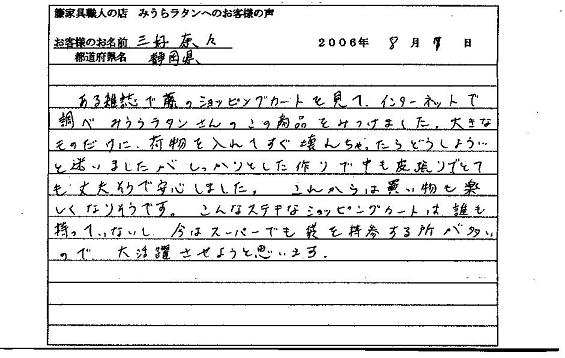 籐家具職人の店 みうらラタンへのお客様の声
お客様のお名前 三好 奈々 2006年 8月 7日
都道府県名 静岡県
ある雑誌で藤のショッピングカートを見て、インターネットで
調べみうらラタンさんのこの商品をみつけました。大きな
ものだけに、荷物を入れてすぐ壊れちゃったらどうしよう…
と迷いましたがしっかりとした作りで中も皮張りでとて
も丈夫そうで安心しました。 これからは買い物も楽
しくなりそうです。 こんなステキなショッピングカートは誰も
持っていないし 今はスーパーでも袋を持参する所が多い
ので 大活躍させようと思います。